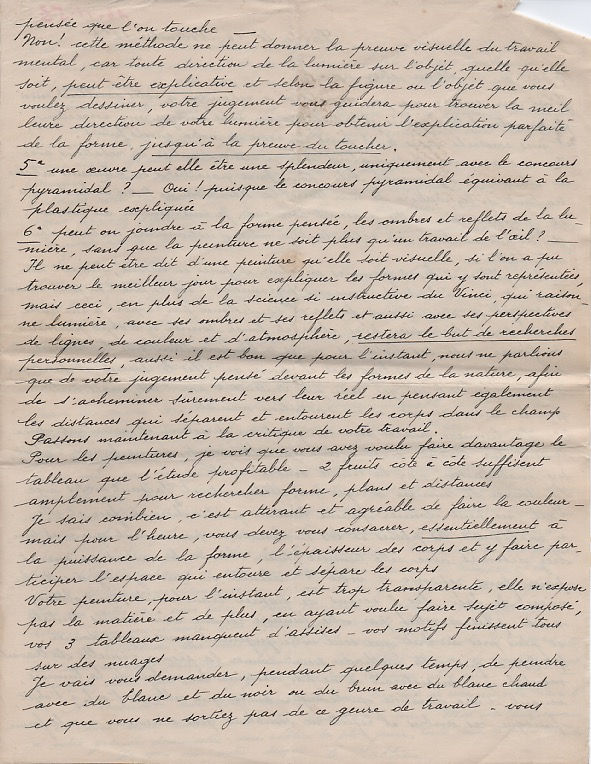 pensée que l'on touche —
Non! cette méthode ne peut donner la preuve visuelle du travail
mental, car toute direction de la lumière sur l'objet, quelle qu'elle
soit, peut être explicative et selon la figure ou l'objet que vous
voulez dessiner, votre jugement vous guidera pour trouver la meil
leure direction de votre lumière pour obtenir l'explication parfaite
de la forme, jusqu'à la preuve du toucher.
5° une œuvre peut elle être une splendeur, uniquement avec le concours
pyramidal? — Oui! puisque le concours pyramidal équivaut à la
plastique expliquée
6° peut on joindre à la forme pensée, les ombres et reflets de la lu-
mière, sans que la peinture ne soit plus qu'un travail de l'œil? —
Il ne peut être dit d'une peinture qu'elle soit visuelle, si l'on a pu
trouver le meilleur jour pour expliquer les formes qui y sont représentées,
mais ceci, en plus de la science si instructive du Vinci, qui raison-
ne lumière, avec ses ombres et ses reflets et aussi avec ses perspectives
de lignes, de couleur et d'atmosphère, restera le but de recherches
personnelles, aussi il est bon que pour l'instant, nous ne parlions
que de votre jugement pensé devant les formes de la nature, afin
de s'acheminer surement vers leur réel en pensant également
les distances qui séparent et entourent les corps dans le champ
Passons maintenant à la critique de votre travail.
Pour les peintures, je vois que vous avez voulu faire davantage le
tableau que l'étude profitable — 2 fruits côte à côte suffisent
amplement pour rechercher forme, plans et distances
Je sais combien, c'est attirant et agréable de faire la couleur —
mais pour l'heure, vous devez vous consacrer, essentiellement à
la puissance de la forme, l'épaisseur des corps et y faire par-
ticiper l'espace qui entoure et sépare les corps
Votre peinture, pour l'instant, est trop transparente, elle n'expose
pas la matière et de plus, en ayant voulu faire sujet composé,
vos 3 tableaux manquent d'assises — vos motifs finissent tous
sur des nuages
Je vais vous demander, pendant quelques temps, de peindre
avec du blanc et du noir ou du brun avec du blanc chaud
et que vous ne sortiez pas de ce genre de travail - vous